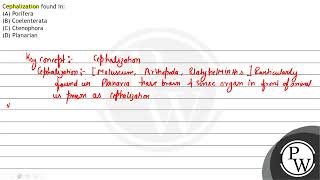 Cephalization found In:
(A) Porifera
(B) Coelenterata
(C) Ctenophora
(D) Planarian
Key concept:- Cephalization
Cephalization:- [Moluscum, Arthopoda, Platyhelminths] Particularly
found in Planaria have brain & sense organ in front of animal
is known as cephalization
PW